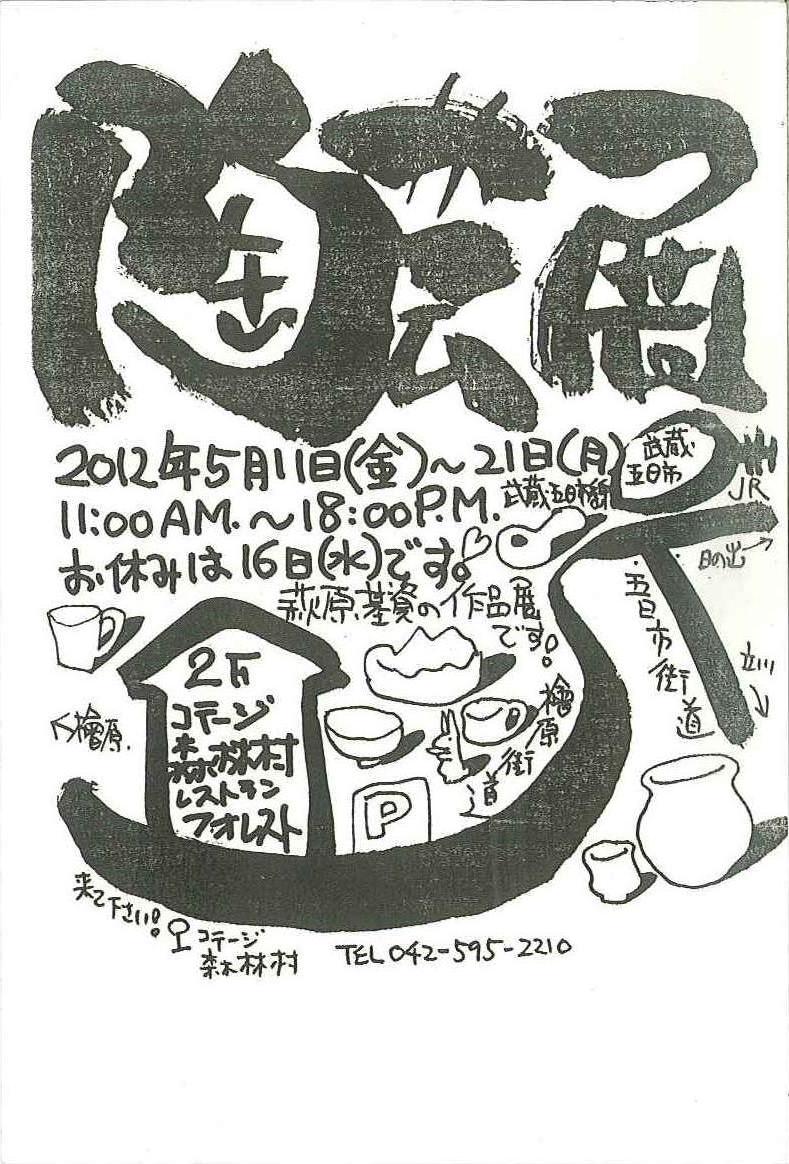 陶芸展
2012年5月11日(金)～21日(月)
11:00AM.～18:00P.M.
お休みは16日(水)です。
萩原基資の作品展
です!
武蔵
五日市
JR
武蔵五日市駅
日の出
五日市街道
立川
檜原街道
檜原
コテージ
森林村
レストラン
フォレスト
P
来て下さい!
コテージ
森林村
TEL 042-595-2210